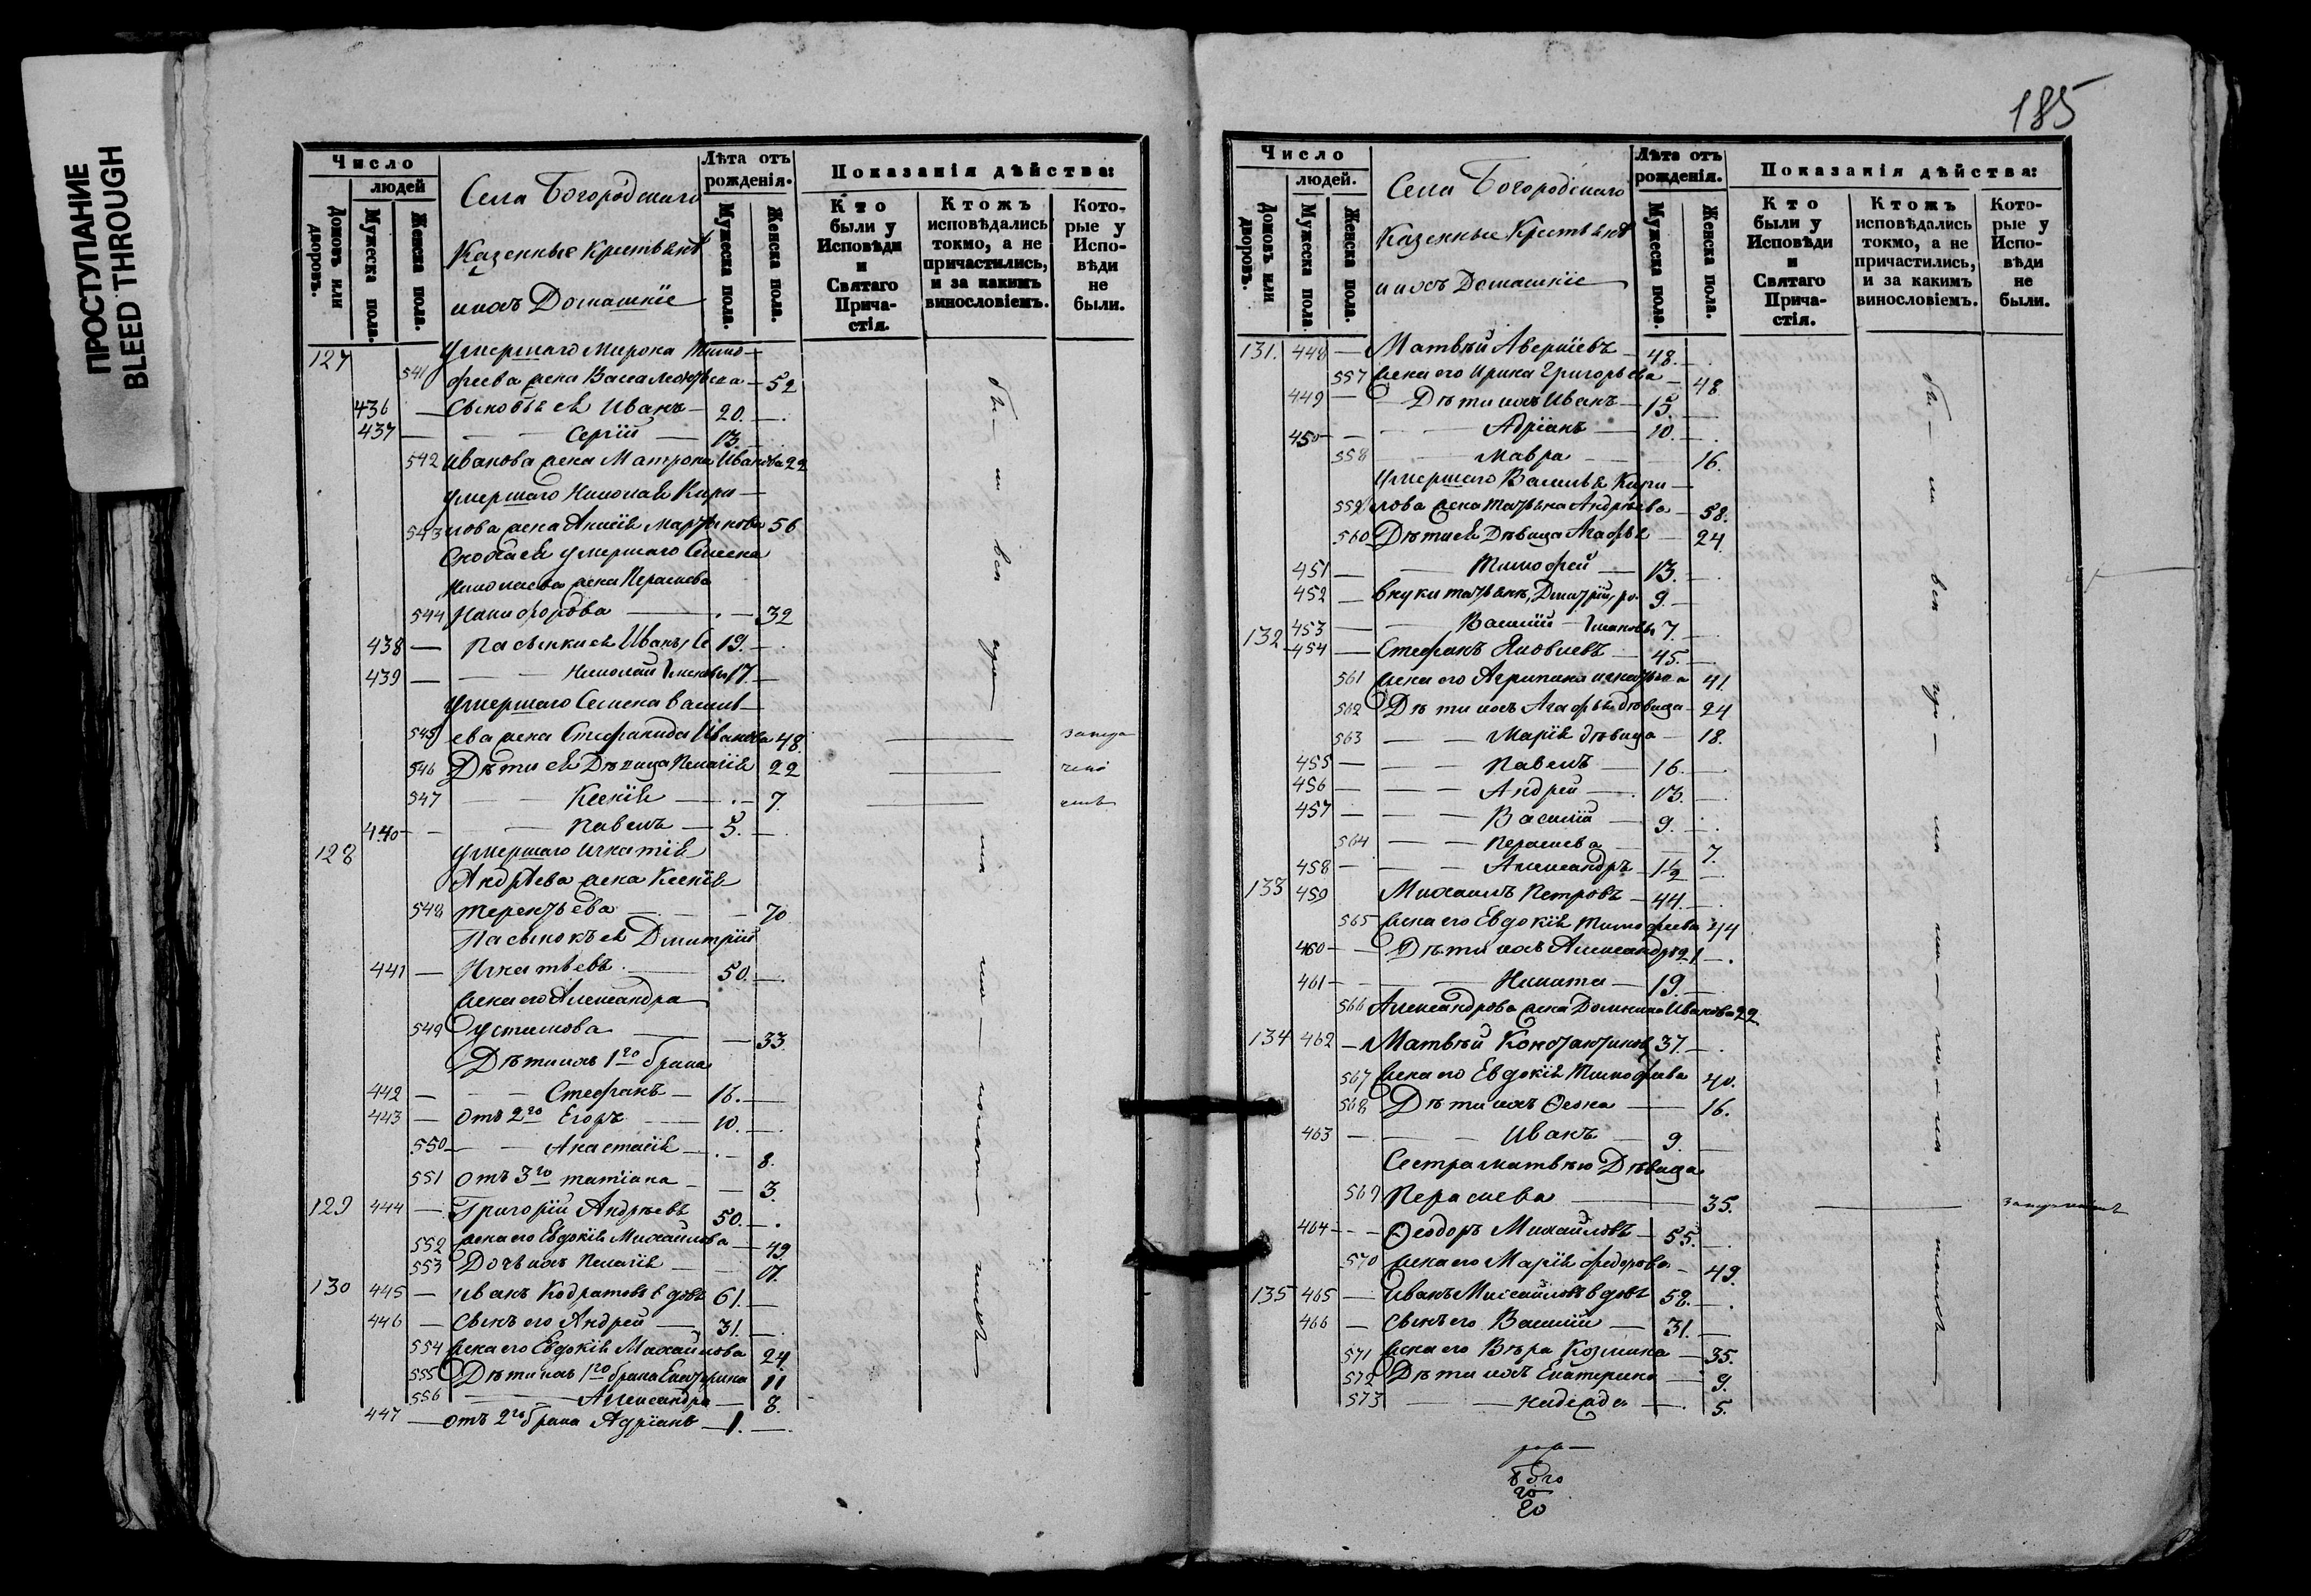 ПРОСТУПАНИЕ
BLEED THROUGH
Число
людей
Домовъ или дворовъ.
Мужеска пола.
Женска пола.
Села Богородскаго
Казенные Крестьяне
и ихъ Домашніе
Лѣта отъ рожденія.
Мужеска пола.
Женска пола.
Показанія дѣйства:
Кто были у Исповѣди и Святаго Причастія.
Ктожъ исповѣдались токмо, а не причастились, и за какимъ винословіемъ.
Которые у Исповѣди не были.
127 Умершаго Мирона Тимо-
541 феева жена Васса 52
436 — Сыновья ея Иванъ — 20. —
437 — Сергій — 13. —
542 Иванова жена Матрона Иванова 22
Умершаго Николая Кири-
543 лова жена Анисія Мартынова 56
Сноха ея умершаго Семена
Николаева жена Параскева
544 Никифорова — 32
438 — Пасынки ея Иванъ 19. —
439 — Николай Семеновы 17. —
Умершаго Семена Василь-
545 ева жена Стефанида Иванова 48.
546 Дѣти ея Дѣвица Пелагія 22
547 — Ксенія — 7.
440 — Павелъ — 5. —
128 Умершаго Игнатія
Андреева жена Ксенія
548 Терентьева — 70
Пасынокъ ея Дмитрій
441 — Игнатьевъ — 50. —
Жена его Александра
549 Устинова — 33.
Дѣти ихъ 1го брака
442 — Стефанъ — 16. —
443 — отъ 2го Егоръ — 10. —
550 — Анастасія — 8.
551 отъ 3го татіана — 3.
129 444 — Григорій Андреевъ 50. —
552 жена его Евдокія Михайлова — 49.
553 Дочь ихъ Пелагія — 17.
130 445 — Иванъ Кодратовъ вдовъ 61. —
446 — Сынъ его Андрей — 31. —
554 жена его Евдокія Михайлова 24.
555 Дѣти ихъ 1го брака Екатерина 11
556 — Александра — 8.
447 — отъ 2го брака Адріанъ — 1. —
185
Число
людей.
Домовъ или дворовъ.
Мужеска пола.
Женска пола.
Села Богородскаго
Казенные Крестьяне
и ихъ Домашніе
Лѣта отъ рожденія.
Мужеска пола.
Женска пола.
Показанія дѣйства:
Кто были у Исповѣди и Святаго Причастія.
Ктожъ исповѣдались токмо, а не причастились, и за какимъ винословіемъ.
Которые у Исповѣди не были.
131. 448 — Матвѣй Аверкіевъ — 48. —
557 жена его Ирина Григорьева — 48
449 — Дѣти ихъ Иванъ — 15. —
450 — Адріанъ — 10. —
558 — Мавра — 16.
Умершаго Василья Кири-
559 лова жена Татьяна Андреева — 58.
560 Дѣти ея Дѣвица Агафья 24
451 — Тимофей — 13. —
452 — внуки татьяны, Дмитрій 9. —
453 — Василій 7. —
132 454 — Стефанъ Яковлевъ — 45. —
561 жена его Агрипина Игнатьева 41.
562 Дѣти ихъ Агафья дѣвица — 24
563 — Марія дѣвица — 18.
455 — Павелъ — 16. —
456 — Андрей — 13. —
457 — Василій — 9. —
564 — Параскева — 7.
458 — Александръ — 1½ —
133 459 Михаилъ Петровъ — 44. —
565 жена его Евдокія Тимофеева 44
460 — Дѣти ихъ Александръ 21 —
461 — Никита — 19. —
566 Александрова жена Домника Иванова 22
134 462 — Матвѣй Константиновъ 37. —
567 жена его Евдокія Тимофеева 40.
568 Дѣти ихъ Ѳекла — 16.
463 — Иванъ — 9. —
Сестра матвѣю Дѣвица
569 Параскева — 35.
464 — Ѳеодоръ Михайловъ — 55. —
570 жена его Марія Федорова — 49.
135 465 — Иванъ Михайловъ вдовъ 58. —
466 — Сынъ его Василій — 31. —
571 жена его Вѣра Козмина — 35.
572 Дѣти ихъ Екатерина — 9.
573 — надежда — 5.